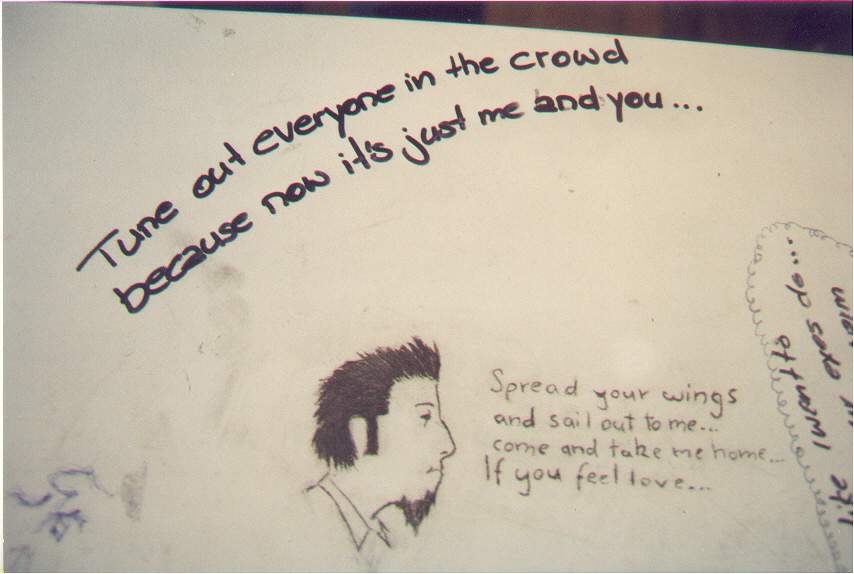 Tune out everyone in the crowd
because now it's just me and you...
Spread your wings
and sail out to me...
come and take me home...
If you feel love...